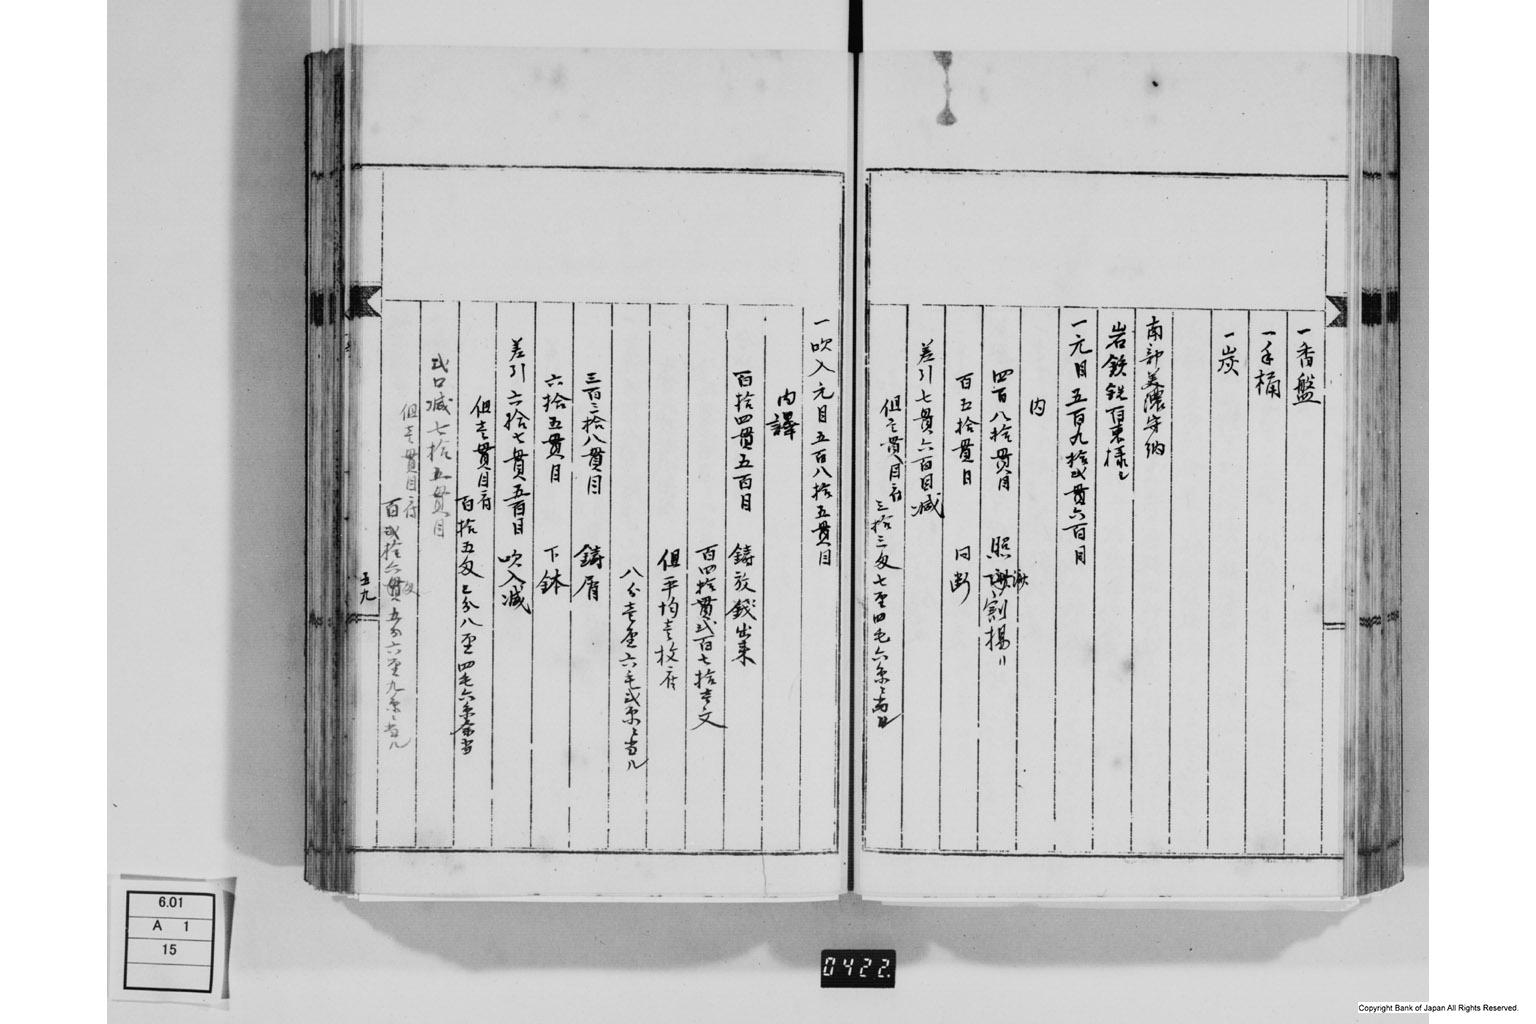 一香盤
一手桶
一炭
南部美濃守納
岩鉄銑百束様し
一元目五百九拾弐貫六百目
内
四百八拾貫目 割揚リ
百五拾貫目 同断
差引七貫六百目減
但壱貫目ニ付
三拾三匁七厘四毛六糸ニ当ル
一吹入元目五百八拾五貫目
内譯
百拾四貫五百目 鋳放銭出来
百四拾貫弐百七拾壱文
但平均壱枚ニ付
八分壱厘六毛弐糸ニ当ル
三百三拾八貫目 鋳屑
六拾五貫目 下鉢
差引六拾七貫五百目 吹入減
但壱貫目ニ付
百拾五匁 分八厘四毛六糸
弐口減七拾五貫目
但壱貫目ニ付
百弐拾六匁五分六厘九糸ニ当ル
五九
6.01
A 1
15
0422.
Copyright Bank of Japan All Rights Reserved.